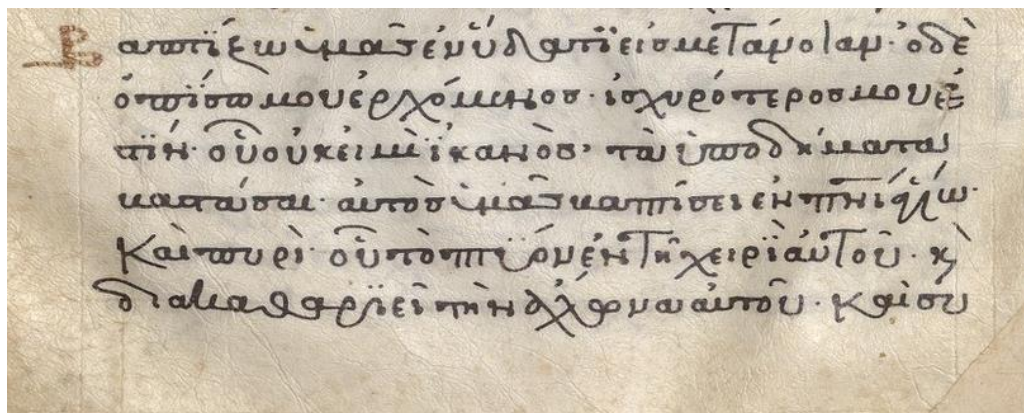 απτΐζω ὑμᾶς ἐν ὕδατϊ εἰσ μετάνοιαν· ὁ δὲ
ὀπΐσω μου ἐρχόμενοσ· ἰσχυρότεροσ μου ἐ
τϊν· οὗ οὐκ εἰμὶ ϊκανὸσ· τὰ ὑποδήματα
βαστάσαι· αὐτὸσ ὑμᾶς βαπτίσει ἐν πνι ἁγίω·
Καὶ πυρὶ· οὗ τὸ πτύον ἐν τῆ χειρϊ αὐτοῦ· κ̀
διακαθαρϊεῖ τὴν ἅλωνα αὐτοῦ· καὶ συ